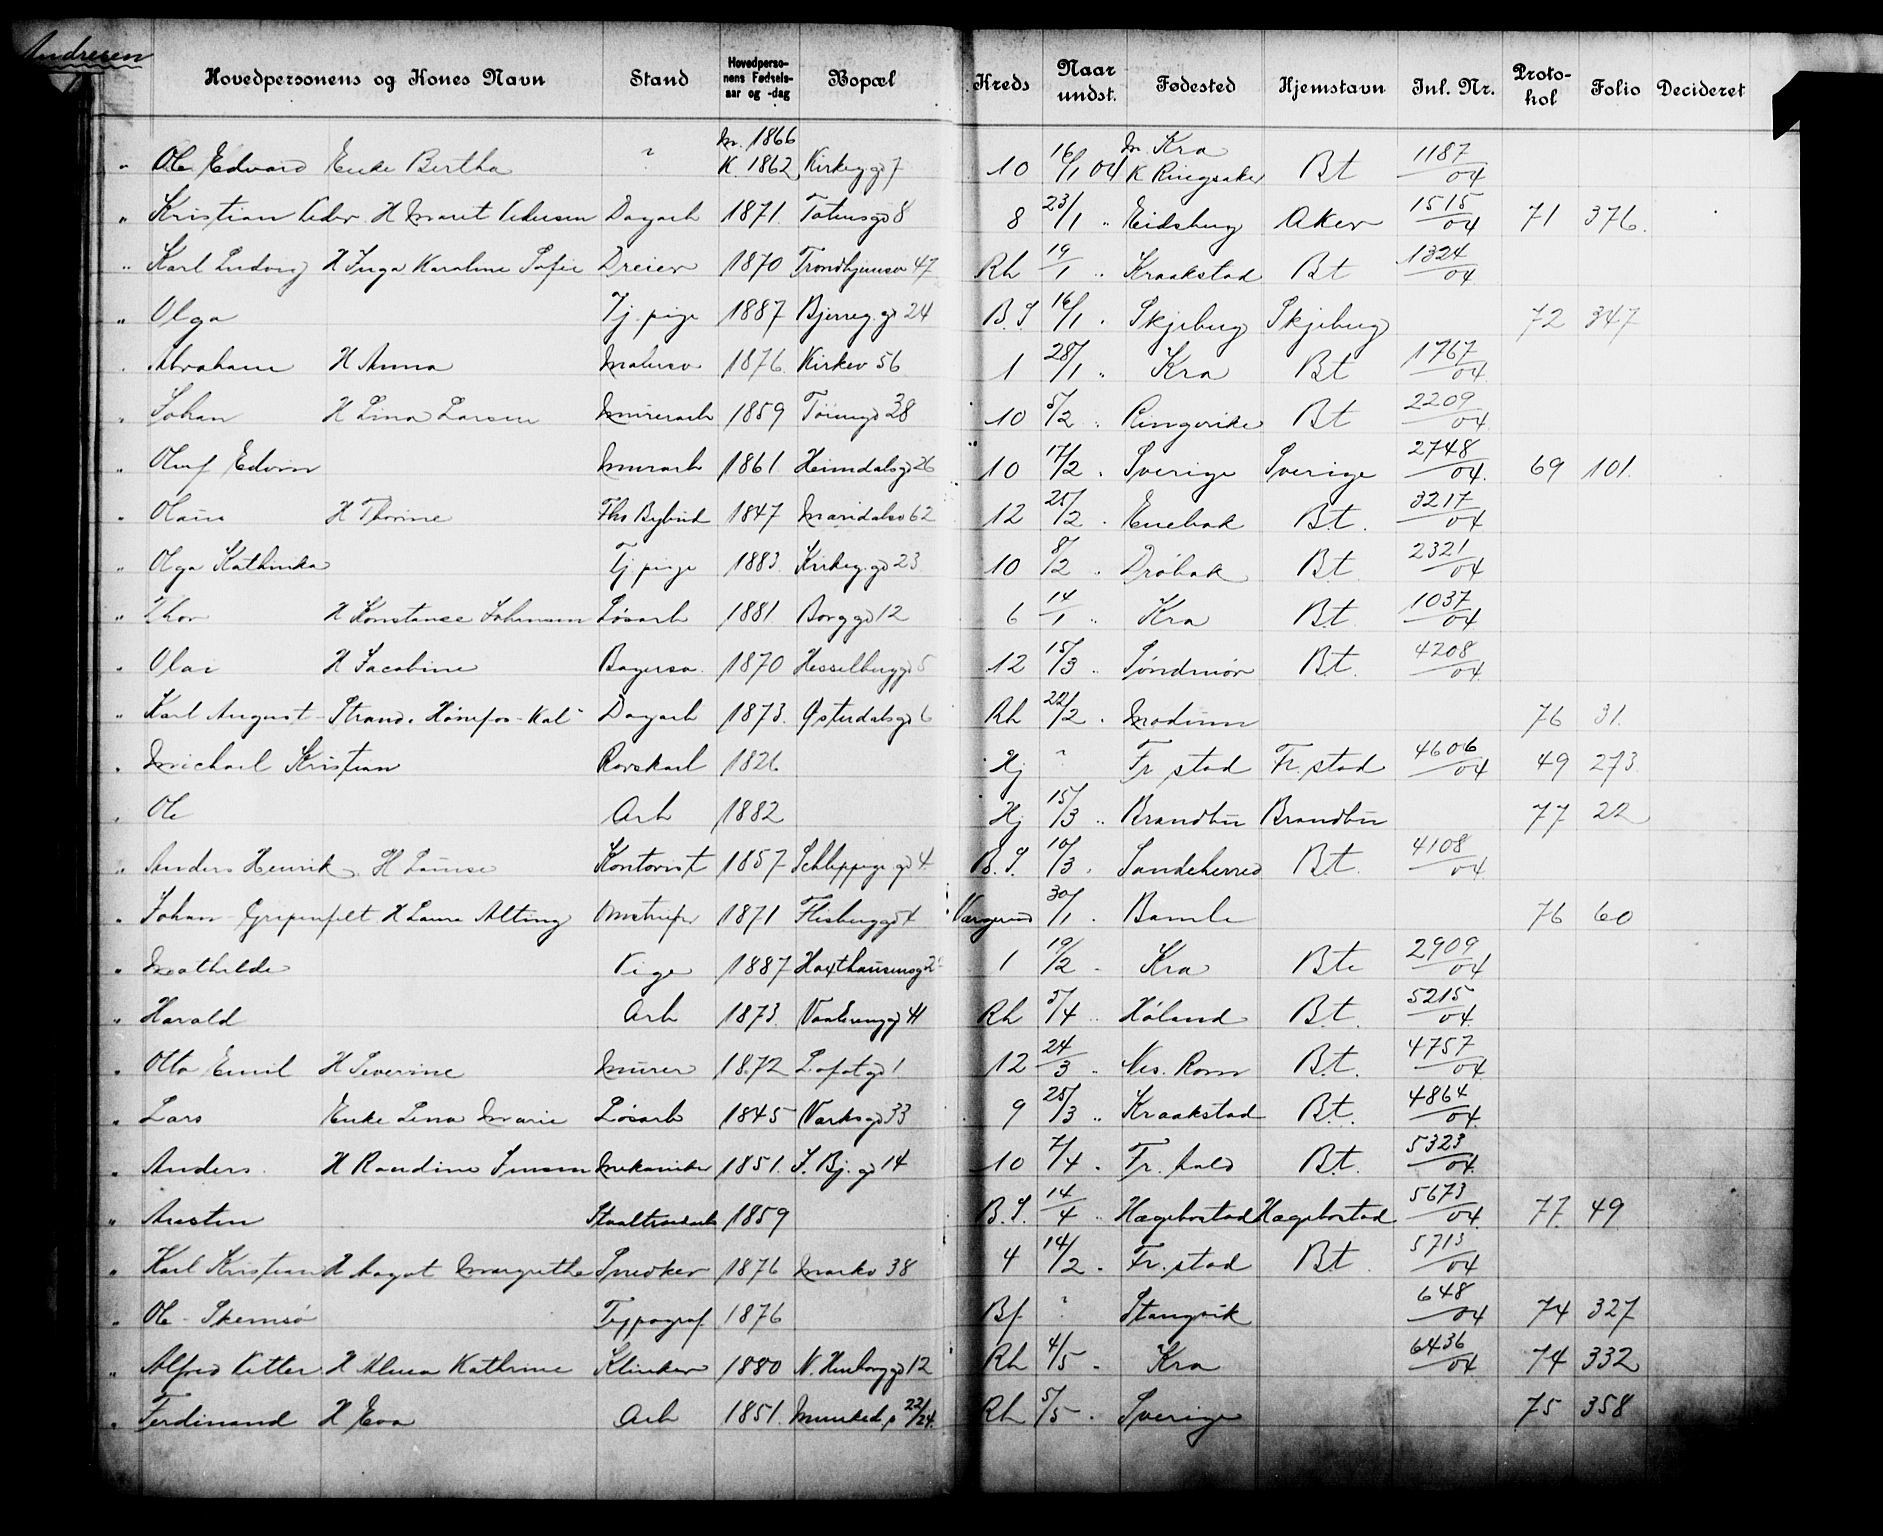 Andresen
Hovedpersonens og Kones Navn Stand Hovedpersonens Fødselsaar og -dag Bopæl Kreds Naar undst. Fødested Hjemstavn Inl. Nr. Protokol Folio Decideret
" Ole Edvard Enke Bertha " M. 1866 K. 1862 Kirkeg.gd 7 10 16/1 04 M. Kra K Ringsaker Bt 1187/04
" Kristian H Marit Dagarb 1871. 8 8 23/1 " Eidsberg Aker 1515/04 71 376.
" Karl Ludvig H Inga Karoline Sofie Dreier 1870 Trondhjemsv 47 Rh 19/1 " Kraakstad Bt 1324/04
" Olga Tj. pige 1887 Bjerreg.gd 24 B.S 16/1 " Skjeberg Skjeberg 72 347
" Abraham H Anna Malersv 1876. Kirkev 56 1 28/1 " Kra Bt 1767/04
" Johan H Lina Larsen Murerarb 1859 Tøiengd 38 10 5/2 " Ringerike Bt 2209/04
" Oluf Edvin Murarb 1861. Heimdalsgd 26 10 17/2 " Sverige Sverige 2748/04 69 101.
" Olaus H Thorine Fhv Bybud 1847 Maridalsv 62 12 25/2 " Enebak Bt. 3217/04
" Olga Kathinka Tj. pige 1883. Kirkeg.gd 23 10 8/2 " Drøbak Bt 2321/04
" Thor H Konstance Johansen Løsarb 1881. Borggd 12 6 14/1 " Kra Bt. 1037/04
" Olai H Jacobine Bagersv. 1870 Hesselberggd 5 12 15/3 " Søndmør Bt. 4208/04
" Karl August - Strand. Hønefos-Kal- Dagarb 1873. Østerdalsgd 6 Rh 22/2 " Modum 76 31.
" Michael Kristian Rorskarl 1826 Hj " Fr stad Fr. stad 4606/04 49 273
" Ole Arb 1882 Hj 15/3 " Brandbu Brandbu 77 22
" Anders Henrik H Louise Kontorist 1857 Schleppegr.gd 4 B.S. 10/3 " Sandeherred Bt. 4108/04
" Johan - Gripenfelt H Laura Alting 1871 4 30/1 " Bamle 76 60
" Mathilde Pige 1887 Haxthausensgd 1 19/2 " Kra Bt. 2909/04
" Harald Arb 1873. Vaalerenggd 41 Rh 5/4 " Høland Bt. 5215/04
" Otto Emil H Severine Murer 1872 Lofotgd 1 12 24/3 " Nes. Rom Bt. 4757/04
" Lars Enke Lina Marie Løsarb 1845 Verksgd 33 9 25/3 " Kraakstad Bt. 4864/04
" Anders H Randine Jensen Mekaniker 1851. S. Bj. gd 14 10 7/4 " Fr. hald Bt. 5323/04
" Austen Staaltraadarb 1859 B.S. 14/4 " Hægebostad Hægebostad 5673/04 77. 49
" Karl Kristian H Aagot Margrethe Snedker 1876 Markv 38 4 14/2 " Fr. stad Bt 5713/04
" Ole - Skemsø Typograf. 1876 Bf. " Stangvik 648/04 74 327
" Alfred Petter H Alma Kathrine Klinker 1880 12 Rh 4/5 " Kra 6436/04 74 332
" Ferdinand H Eva Arb 1851. Munked.v 22/24. Rh 5/5 " Sverige 75 358